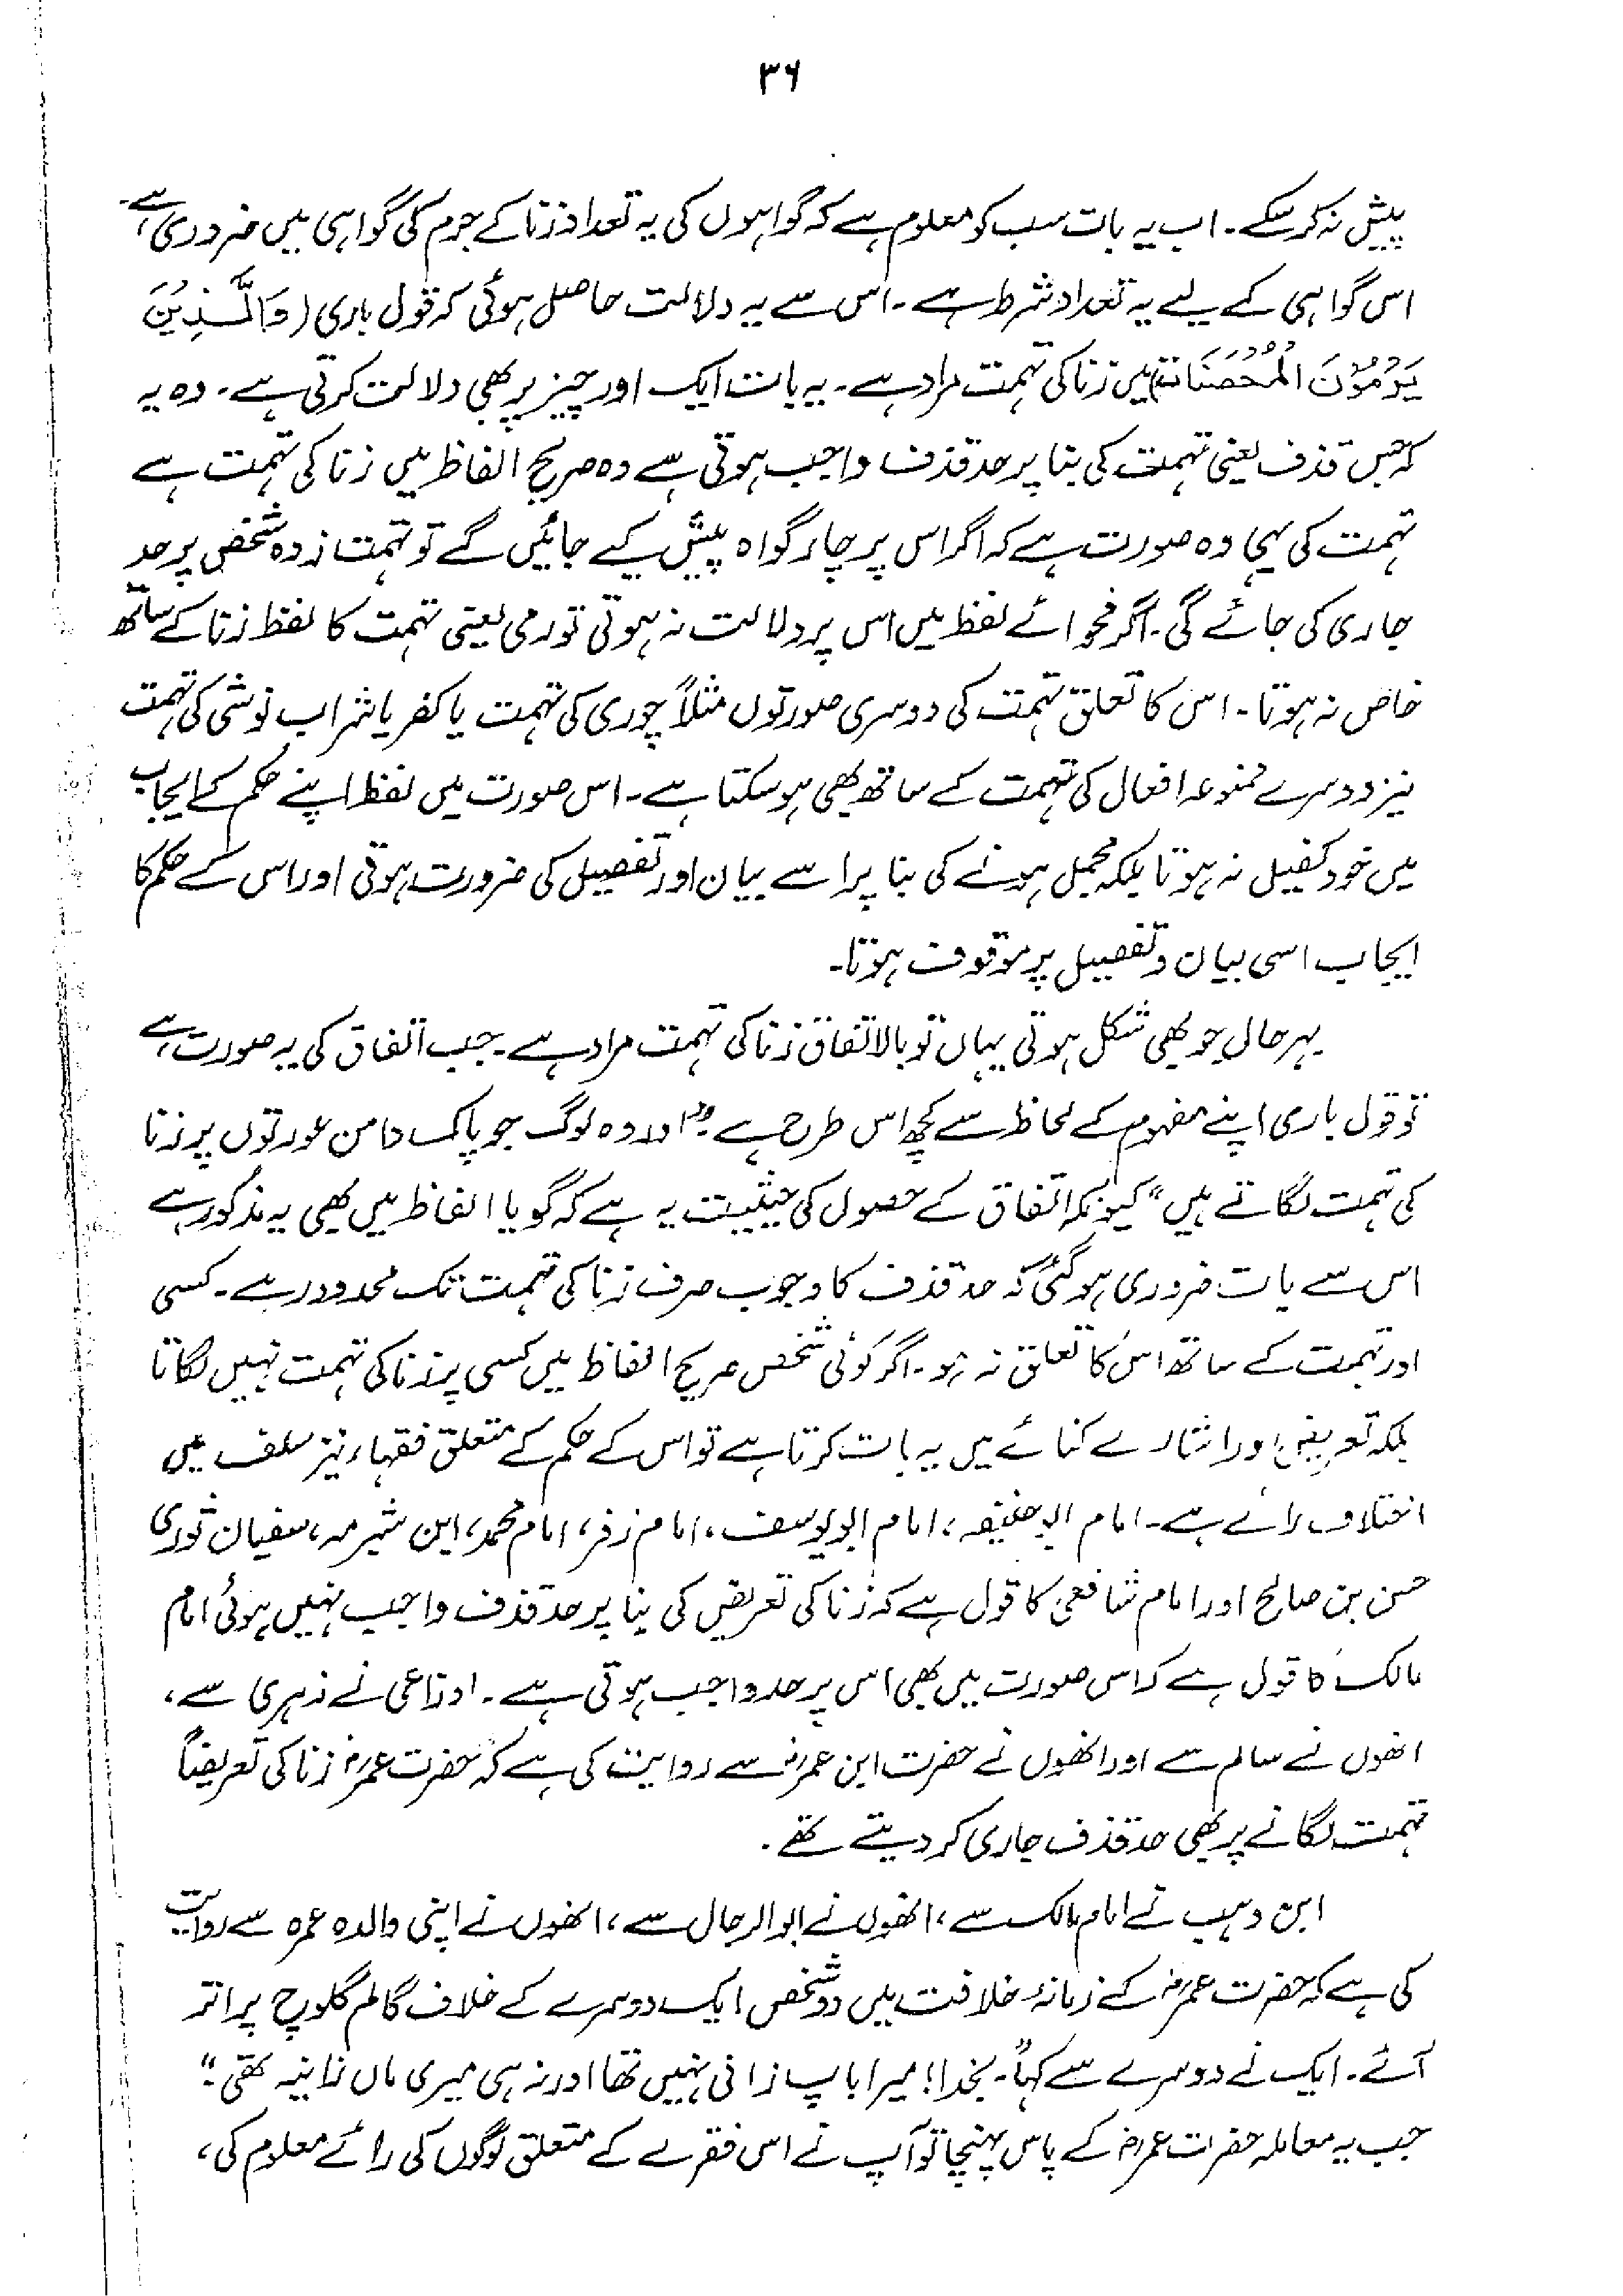 ۳۶
پیش نہ کر سکے۔ اب یہ بات سب کو معلوم ہے کہ گواہوں کی یہ تعداد زنا کے جرم کی گواہی میں ضروری ہے۔
اس گواہی کے لیے یہ تعداد شرط ہے۔ اس سے یہ دلالت حاصل ہوئی کہ قول باری (وَالَّذِیْنَ
یَرْمُوْنَ الْمُحْصَنَاتِ) میں زنا کی تہمت مراد ہے۔ یہ بات ایک اور چیز پر بھی دلالت کرتی ہے۔ وہ یہ
کہ جس قذف یعنی تہمت کی بنا پر حد قذف واجب ہوتی ہے وہ صریح الفاظ میں زنا کی تہمت ہے
تہمت کی یہی وہ صورت ہے کہ اگر اس پر چار گواہ پیش کیے جائیں گے تو تہمت زدہ شخص پر حد
جاری کی جائے گی۔ اگر فحوائے لفظ میں اس پر دلالت نہ ہوتی تو رمی یعنی تہمت کا لفظ زنا کے ساتھ
خاص نہ ہوتا۔ اس کا تعلق تہمت کی دوسری صورتوں مثلاً چوری کی تہمت یا کفر یا شراب نوشی کی تہمت
نیز دوسرے ممنوعہ افعال کی تہمت کے ساتھ بھی ہو سکتا ہے۔ اس صورت میں لفظ اپنے حکم کے ایجاب
میں خود کفیل نہ ہوتا بلکہ مجمل ہونے کی بنا پر اسے بیان اور تفصیل کی ضرورت ہوتی اور اس کے حکم کا
ایجاب اسی بیان و تفصیل پر موقوف ہوتا۔
بہر حال جو بھی شکل ہوتی یہاں تو بالاتفاق زنا کی تہمت مراد ہے۔ جب اتفاق کی یہ صورت ہے
تو قول باری اپنے مفہوم کے لحاظ سے کچھ اس طرح ہے "اور وہ لوگ جو پاک دامن عورتوں پر زنا
کی تہمت لگاتے ہیں" کیونکہ اتفاق کے حصول کی حیثیت یہ ہے کہ گویا الفاظ میں بھی یہ مذکور ہے
اس سے یات ضروری ہوگئی کہ حد قذف کا وجوب صرف زنا کی تہمت تک محدود رہے۔ کسی
اور تہمت کے ساتھ اس کا تعلق نہ ہو۔ اگر کوئی شخص صریح الفاظ میں کسی پر زنا کی تہمت نہیں لگاتا
بلکہ تعریض اور اشارے کنائے میں یہ بات کرتا ہے تو اس کے حکم کے متعلق فقہاء نیز سلف میں
اختلاف رائے ہے۔ امام ابوحنیفہ، امام ابویوسف، امام زفر، امام محمد، ابن شبرمہ، سفیان ثوری
حسن بن صالح اور امام شافعی کا قول ہے کہ زنا کی تعریض کی بنا پر حد قذف واجب نہیں ہوئی امام
مالک کا قول ہے کہ اس صورت میں بھی اس پر حد واجب ہوتی ہے۔ اوزاعی نے زہری سے،
انھوں نے سالم سے اور انھوں نے حضرت ابن عمرؓ سے روایت کی ہے کہ حضرت عمرؓ زنا کی تعریضاً
تہمت لگانے پر بھی حد قذف جاری کر دیتے تھے۔
ابن وہب نے امام مالک سے، انھوں نے ابوالرجال سے، انھوں نے اپنی والدہ عمرہ سے روایت
کی ہے کہ حضرت عمرؓ کے زمانۂ خلافت میں دو شخص ایک دوسرے کے خلاف گالم گلوچ پر اتر
آئے۔ ایک نے دوسرے سے کہا۔ "بخدا! میرا باپ زانی نہیں تھا اور نہ ہی میری ماں زانیہ تھی"
جب یہ معاملہ حضرت عمرؓ کے پاس پہنچا تو آپ نے اس فقرے کے متعلق لوگوں کی رائے معلوم کی،